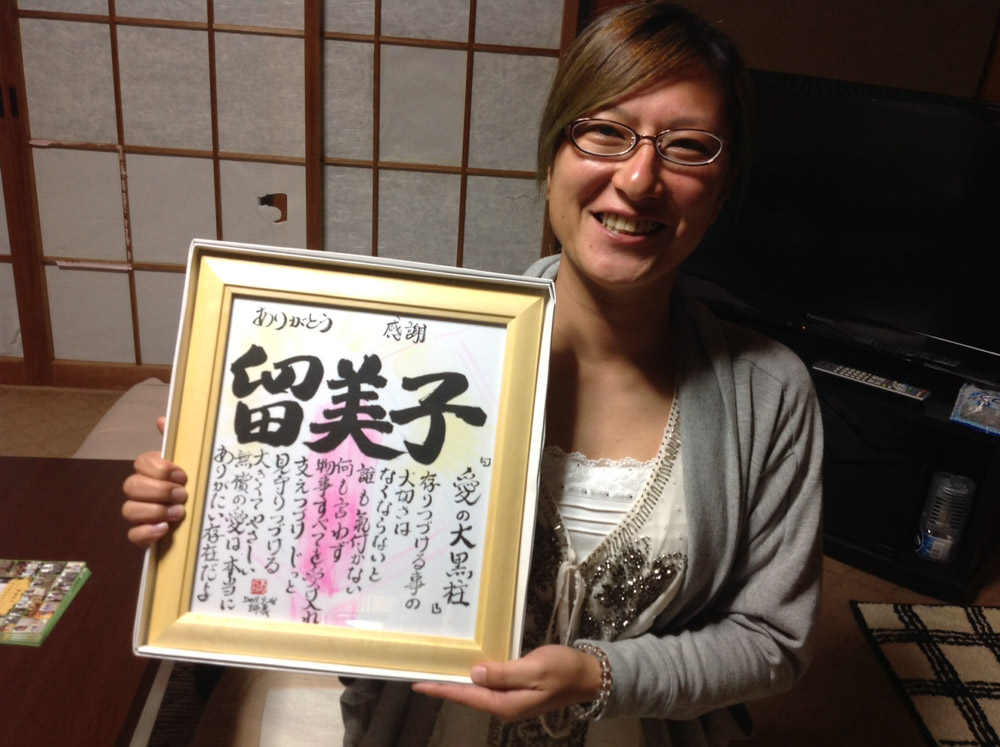 ありがとう
感謝
留美子
『愛の大黒柱』
存りつづける事の
大切さは
なくならないと
誰も気付かない
何も言わず
物事すべてを受け入れ
支えつづけ じっと
見守りつづける
大きくてやさしい
無償の愛は本当に
ありがたい存在だよ